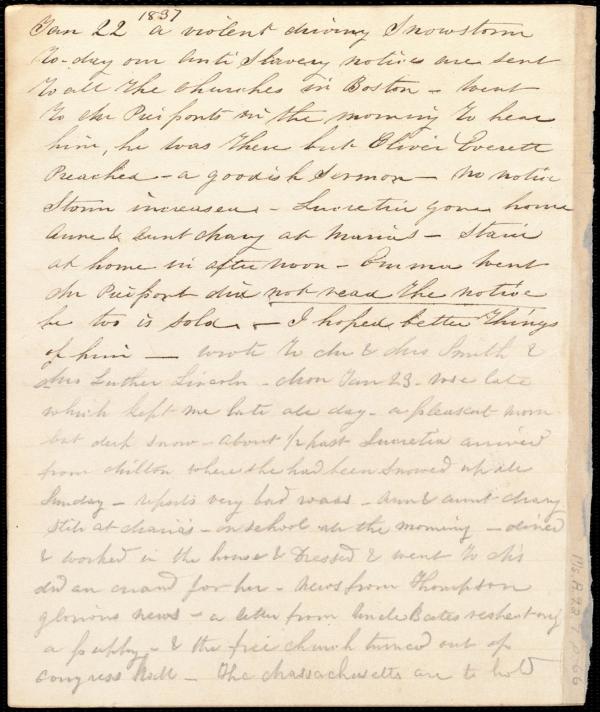 1837
Jan 22 a violent driving Snowstorm
To-day our Anti Slavery notices are sent
to all the Churches in Boston - Went
to Mr Pierponts in the morning to hear
him, he was there but Oliver Everett
Preached - a goodish Sermon - no notice
Storm increased - Lucretia gone home
Anne & Aunt Mary at Marias - Staid
at home in afternoon - Emma went
Mr Pierpont did not read the notice
he too is sold - I hoped better things
of him - wrote to Mr & Mrs Smith &
Mrs Luther Lincoln - Mon Jan 23 - rose late
which kept me late all day - a pleasant morn
but deep snow - about 1/2 past Lucretia arrived
from Milton where she had been Snowed up all
Sunday - reports very bad roads - Ann & aunt Mary
Still at Maria's - in school all the morning - dined
& worked in the house & Dressed & went to
did an errand for her - News from Thompson
glorious news - a letter from Uncle Bates respecting
a puppy - & the free church turned out of
Congress Hall - The Massachusetts are to hold
Ms.A.22 7 p. 66